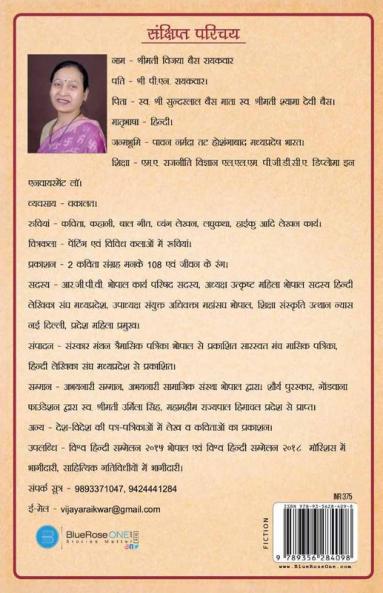 संक्षिप्त परिचय
नाम - श्रीमती विजया बैस रायकवार
पति - श्री पी.एन. रायकवार।
पिता - स्व. श्री सुन्दरलाल बैस माता स्व. श्रीमती श्यामा देवी बैस।
मातृभाषा - हिन्दी।
जन्मभूमि - पावन नर्मदा तट होशंगाबाद मध्यप्रदेष भारत।
शिक्षा - एम.ए. राजनीति विज्ञान एल.एल.एम. पी.जी.डी.सी.ए. डिप्लोमा इन
एनवायरमेंट लॉ।
व्यवसाय - वकालत।
रुचियां - कविता, कहानी, बाल गीत, व्यंग लेखन, लघुकथा, हाईकु आदि लेखन कार्य।
चित्रकला - पेंटिंग एवं विविध कलाओं में रूचियां।
प्रकाशन - 2 कविता संग्रह मनके 108 एवं जीवन के रंग।
सदस्य - आर.जी.पी.वी. भोपाल कार्य परिषद सदस्य, अध्यक्ष उत्कृष्ट महिला भोपाल सदस्य हिन्दी
लेखिका संघ मध्यप्रदेश, उपाध्यक्ष संयुक्त अधिवक्ता महासंघ भोपाल, शिक्षा संस्कृति उत्थान न्यास
नई दिल्ली, प्रदेश महिला प्रमुख।
संपादन - संस्कार मंथन त्रैमासिक पत्रिका भोपाल से प्रकाशित सारस्वत मंच मासिक पत्रिका,
हिन्दी लेखिका संघ मध्यप्रदेश से प्रकाशित।
सम्मान - अभयनारी सम्मान, अभयनारी सामाजिक संस्था भोपाल द्वारा। शौर्य पुरस्कार, गोंडवाना
फाउंडेशन द्वारा स्व. श्रीमती उर्मिला सिंह, महामहीम राज्यपाल हिमाचल प्रदेश से प्राप्त।
अन्य - देश-विदेश की पत्र-पत्रिकाओं में लेख व कविताओं का प्रकाशन।
उपलब्धि - विश्व हिन्दी सम्मेलन २०१५ भोपाल एवं विश्व हिन्दी सम्मेलन २०१८ मॉरिशस में
भागीदारी, साहित्यिक गतिविधीयों में भागीदारी।
संपर्क सूत्र - 9893371047, 9424441284
ई-मेल - vijayaraikwar@gmail.com
BlueRose ONE
Stories Matter
FICTION
INR 375
ISBN 978-93-5628-409-8
9 789356 284098
www.BlueRoseOne.com